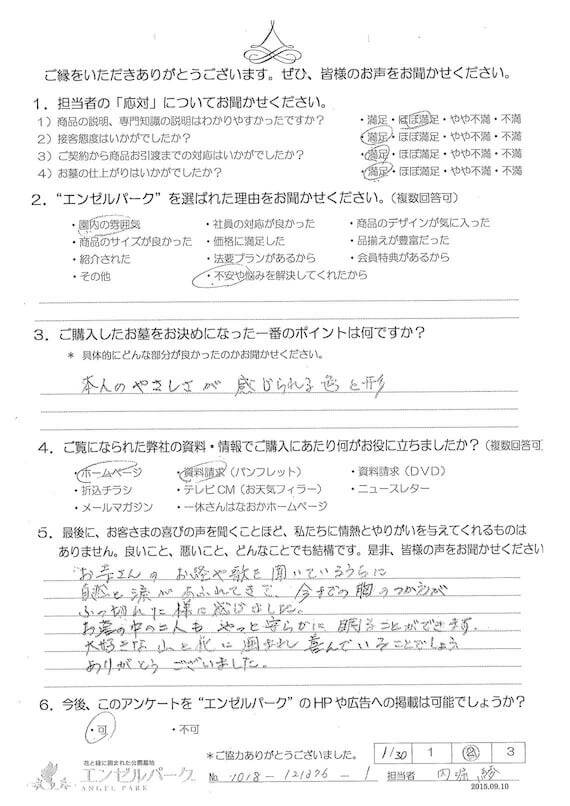 ご縁をいただきありがとうございます。ぜひ、皆様のお声をお聞かせください。
1．担当者の「応対」についてお聞かせください。
1）商品の説明、専門知識の説明はわかりやすかったですか？ ・満足・ほぼ満足・やや不満・不満
2）接客態度はいかがでしたか？ ・満足・ほぼ満足・やや不満・不満
3）ご契約から商品お引渡までの対応はいかがでしたか？ ・満足・ほぼ満足・やや不満・不満
4）お墓の仕上がりはいかがでしたか？ ・満足・ほぼ満足・やや不満・不満
2．“エンゼルパーク”を選ばれた理由をお聞かせください。（複数回答可）
・園内の雰囲気 ・社員の対応が良かった ・商品のデザインが気に入った
・商品のサイズが良かった ・価格に満足した ・品揃えが豊富だった
・紹介された ・法要プランがあるから ・会員特典があるから
・その他 ・不安や悩みを解決してくれたから
3．ご購入したお墓をお決めになった一番のポイントは何ですか？
＊ 具体的にどんな部分が良かったのかお聞かせください。
本人のやさしさが 感じられる色と形
4．ご覧になられた弊社の資料・情報でご購入にあたり何がお役に立ちましたか？（複数回答可
・ホームページ ・資料請求（パンフレット） ・資料請求（DVD）
・折込チラシ ・テレビCM（お天気フィラー） ・ニュースレター
・メールマガジン ・一休さんはなおかホームページ
5．最後に、お客さまの喜びの声を聞くことほど、私たちに情熱とやりがいを与えてくれるものは
ありません。良いこと、悪いこと、どんなことでも結構です。是非、皆様の声をお聞かせください
お寺さんの お経や歌を聞いているうちに
自然と涙があふれてきて、今までの胸のつかえが
ふっ切れた様に感じました。
お墓の中の二人も やっと安らかに 眠ることができます。
大好きな山と花に囲まれ 喜んでいることでしょう
ありがとうございました。
6．今後、このアンケートを“エンゼルパーク”のHPや広告への掲載は可能でしょうか？
・可 ・不可
＊ご協力ありがとうございました。 1/30 1 2 3
花と緑に囲まれた公園墓地
エンゼルパーク
ANGEL PARK
№ 1018-121276-1 担当者 内堀
2015.09.10